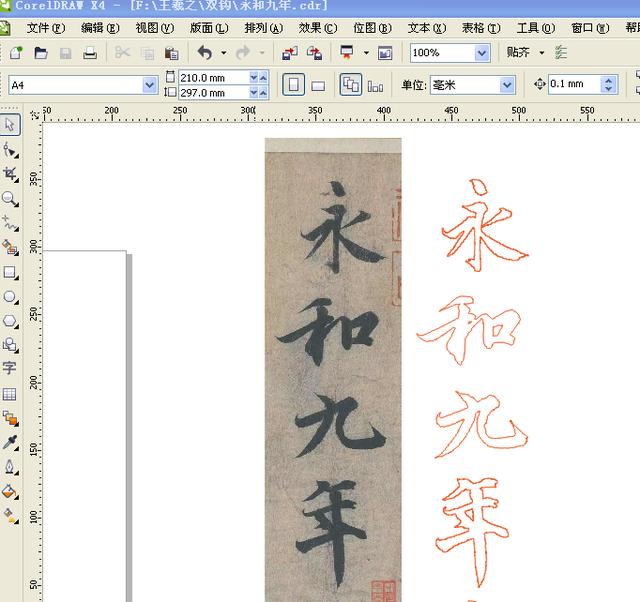 CorelDRAW X4 - [F:\王羲之\双钩\永和九年.cdr]
文件(F) 编辑(E) 视图(V) 版面(L) 排列(A) 效果(C) 位图(B) 文本(X) 表格(T) 工具(O) 窗口(W) 帮
100% 贴齐
A4 210.0 mm 297.0 mm 单位: 毫米 0.1 mm
50 200 250 300 350 400 450 500 550
350
300
250
200
150
100
50
字
永和九年
永和九年